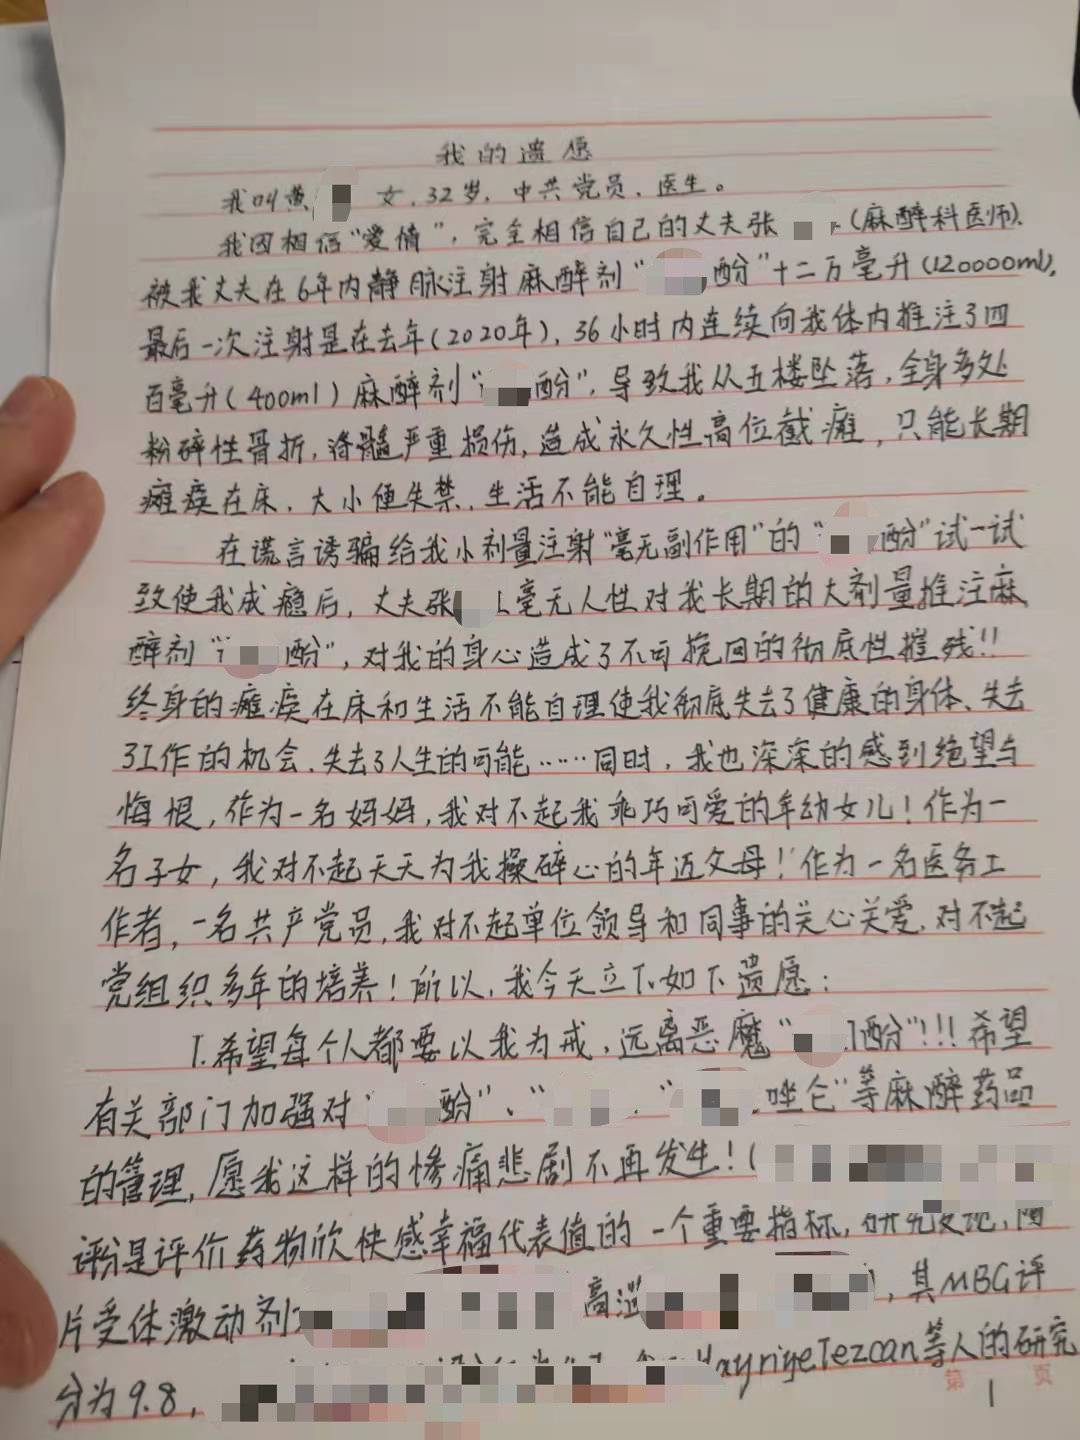 我的遗愿
我叫黄 女，32岁，中共党员、医生。
我因相信“爱情”，完全相信自己的丈夫张 （麻醉科医师）、
被我丈夫在6年内静脉注射麻醉剂“ 酚”十二万毫升（120000ml），
最后一次注射是在去年（2020年），36小时内连续向我体内推注了四
百毫升（400ml）麻醉剂“ 酚”，导致我从五楼坠落，全身多处
粉碎性骨折，脊髓严重损伤，造成永久性高位截瘫，只能长期
瘫痪在床、大小便失禁、生活不能自理。
在谎言诱骗给我小剂量注射“毫无副作用”的“ 酚”试一试
致使我成瘾后，丈夫张 毫无人性对我长期的大剂量推注麻
醉剂“ 酚”，对我的身心造成了不可挽回的彻底性摧残！！
终身的瘫痪在床和生活不能自理使我彻底失去了健康的身体、失去
了工作的机会、失去了人生的可能……同时，我也深深的感到绝望与
悔恨，作为一名妈妈，我对不起我乖巧可爱的年幼女儿！作为一
名子女，我对不起天天为我操碎心的年迈父母！作为一名医务工
作者，一名共产党员，我对不起单位领导和同事的关心关爱，对不起
党组织多年的培养！所以，我今天立下如下遗愿：
1.希望每个人都要以我为戒，远离恶魔“ 酚”！！！希望
有关部门加强对“ 酚”、“ “ 唑仑”等麻醉药品
的管理，愿我这样的惨痛悲剧不再发生！（
评分是评价药物欣快感幸福代表值的一个重要指标，研究发现，阿
片受体激动剂 高 ，其MBG评
分为9.8， Tezcan等人的研究
第 1 页